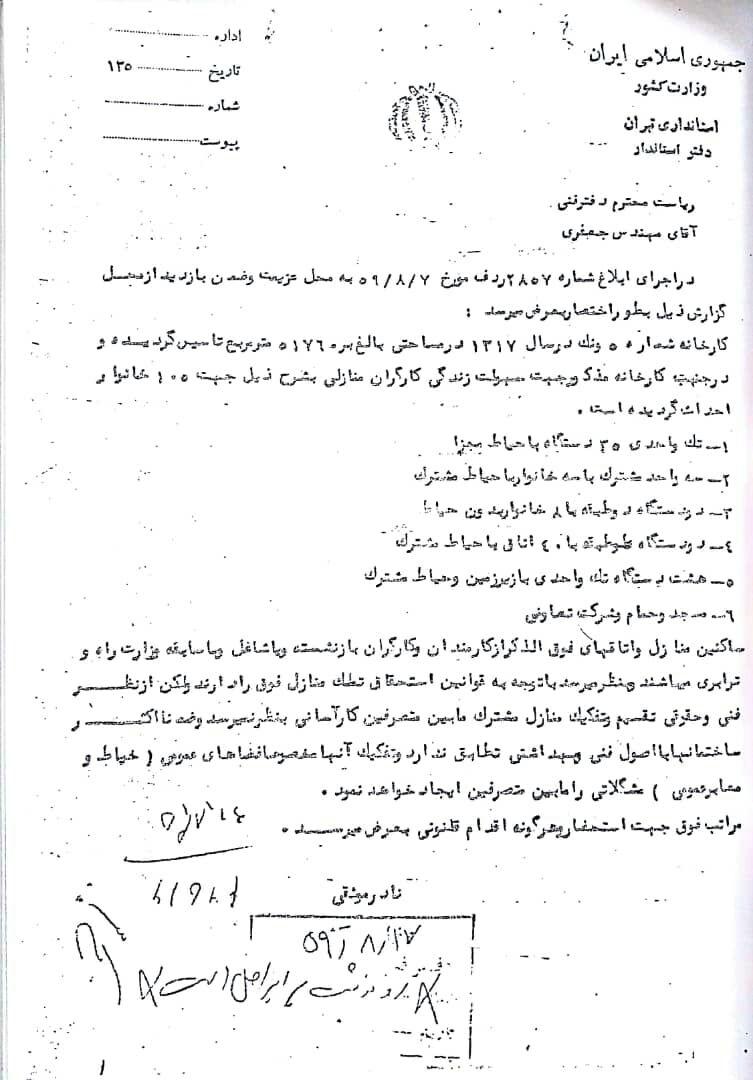 جمهوری اسلامی ایران
وزارت کشور
استانداری تهران
دفتر استاندار
اداره
تاریخ ۱۳۵
شماره
پیوست
ریاست محترم دفتر فنی
آقای مهندس جعفری
در اجرای ابلاغ شماره ۲۸۵۷ ردف مورخ ۵۹/۸/۷ به محل عزیمت وضمن بازدید از محل
گزارش ذیل بطور اختصار بعرض میرسد :
کارخانه شماره ۵ ونک در سال ۱۳۱۷ در مساحتی بالغ بر ۵۱۷۶ مترمربع تاسیس گردیده و
در جنب کارخانه مذکور جهت سهولت زندگی کارگران منازلی بشرح ذیل جهت ۱۰۵ خانوار
احداث گردیده است .
۱- تك واحدی ۳۵ دستگاه با حیاط مجزا
۲- سه واحد مشترك با سه خانوار با حیاط مشترك
۳- دو دستگاه دو طبقه با ۸ خانوار بدون حیاط
۴- دو دستگاه دو طبقه با ۴۰ اتاق با حیاط مشترك
۵- هشت دستگاه تك واحدی با زیرزمین وحیاط مشترك
۶- مسجد وحمام وشرکت تعاونی
ساکنین منازل واتاقهای فوق الذکر از کارمندان وکارگران بازنشسته ویا شاغل وباسابقه وزارت راه و
ترابری میباشند وبنظر میرسد با توجه به قوانین استحقاق تملك منازل فوق را دارند ولکن از نظر
فنی وحقوقی تقسیم وتفکیك منازل مشترك مابین متصرفین کار آسانی بنظر نمیرسد وضمنا اکثر
ساختمانها با اصول فنی وبهداشتی تطابق ندارد وتفکیك آنها مخصوصا فضاهای عمومی ( حیاط و
معابر عمومی ) مشگلاتی را مابین متصرفین ایجاد خواهد نمود .
مراتب فوق جهت استحضار وهرگونه اقدام قانونی بعرض میرسد .
نادر موثقی
۵۹/۸/۱۲
رونوشت برابر اصل است